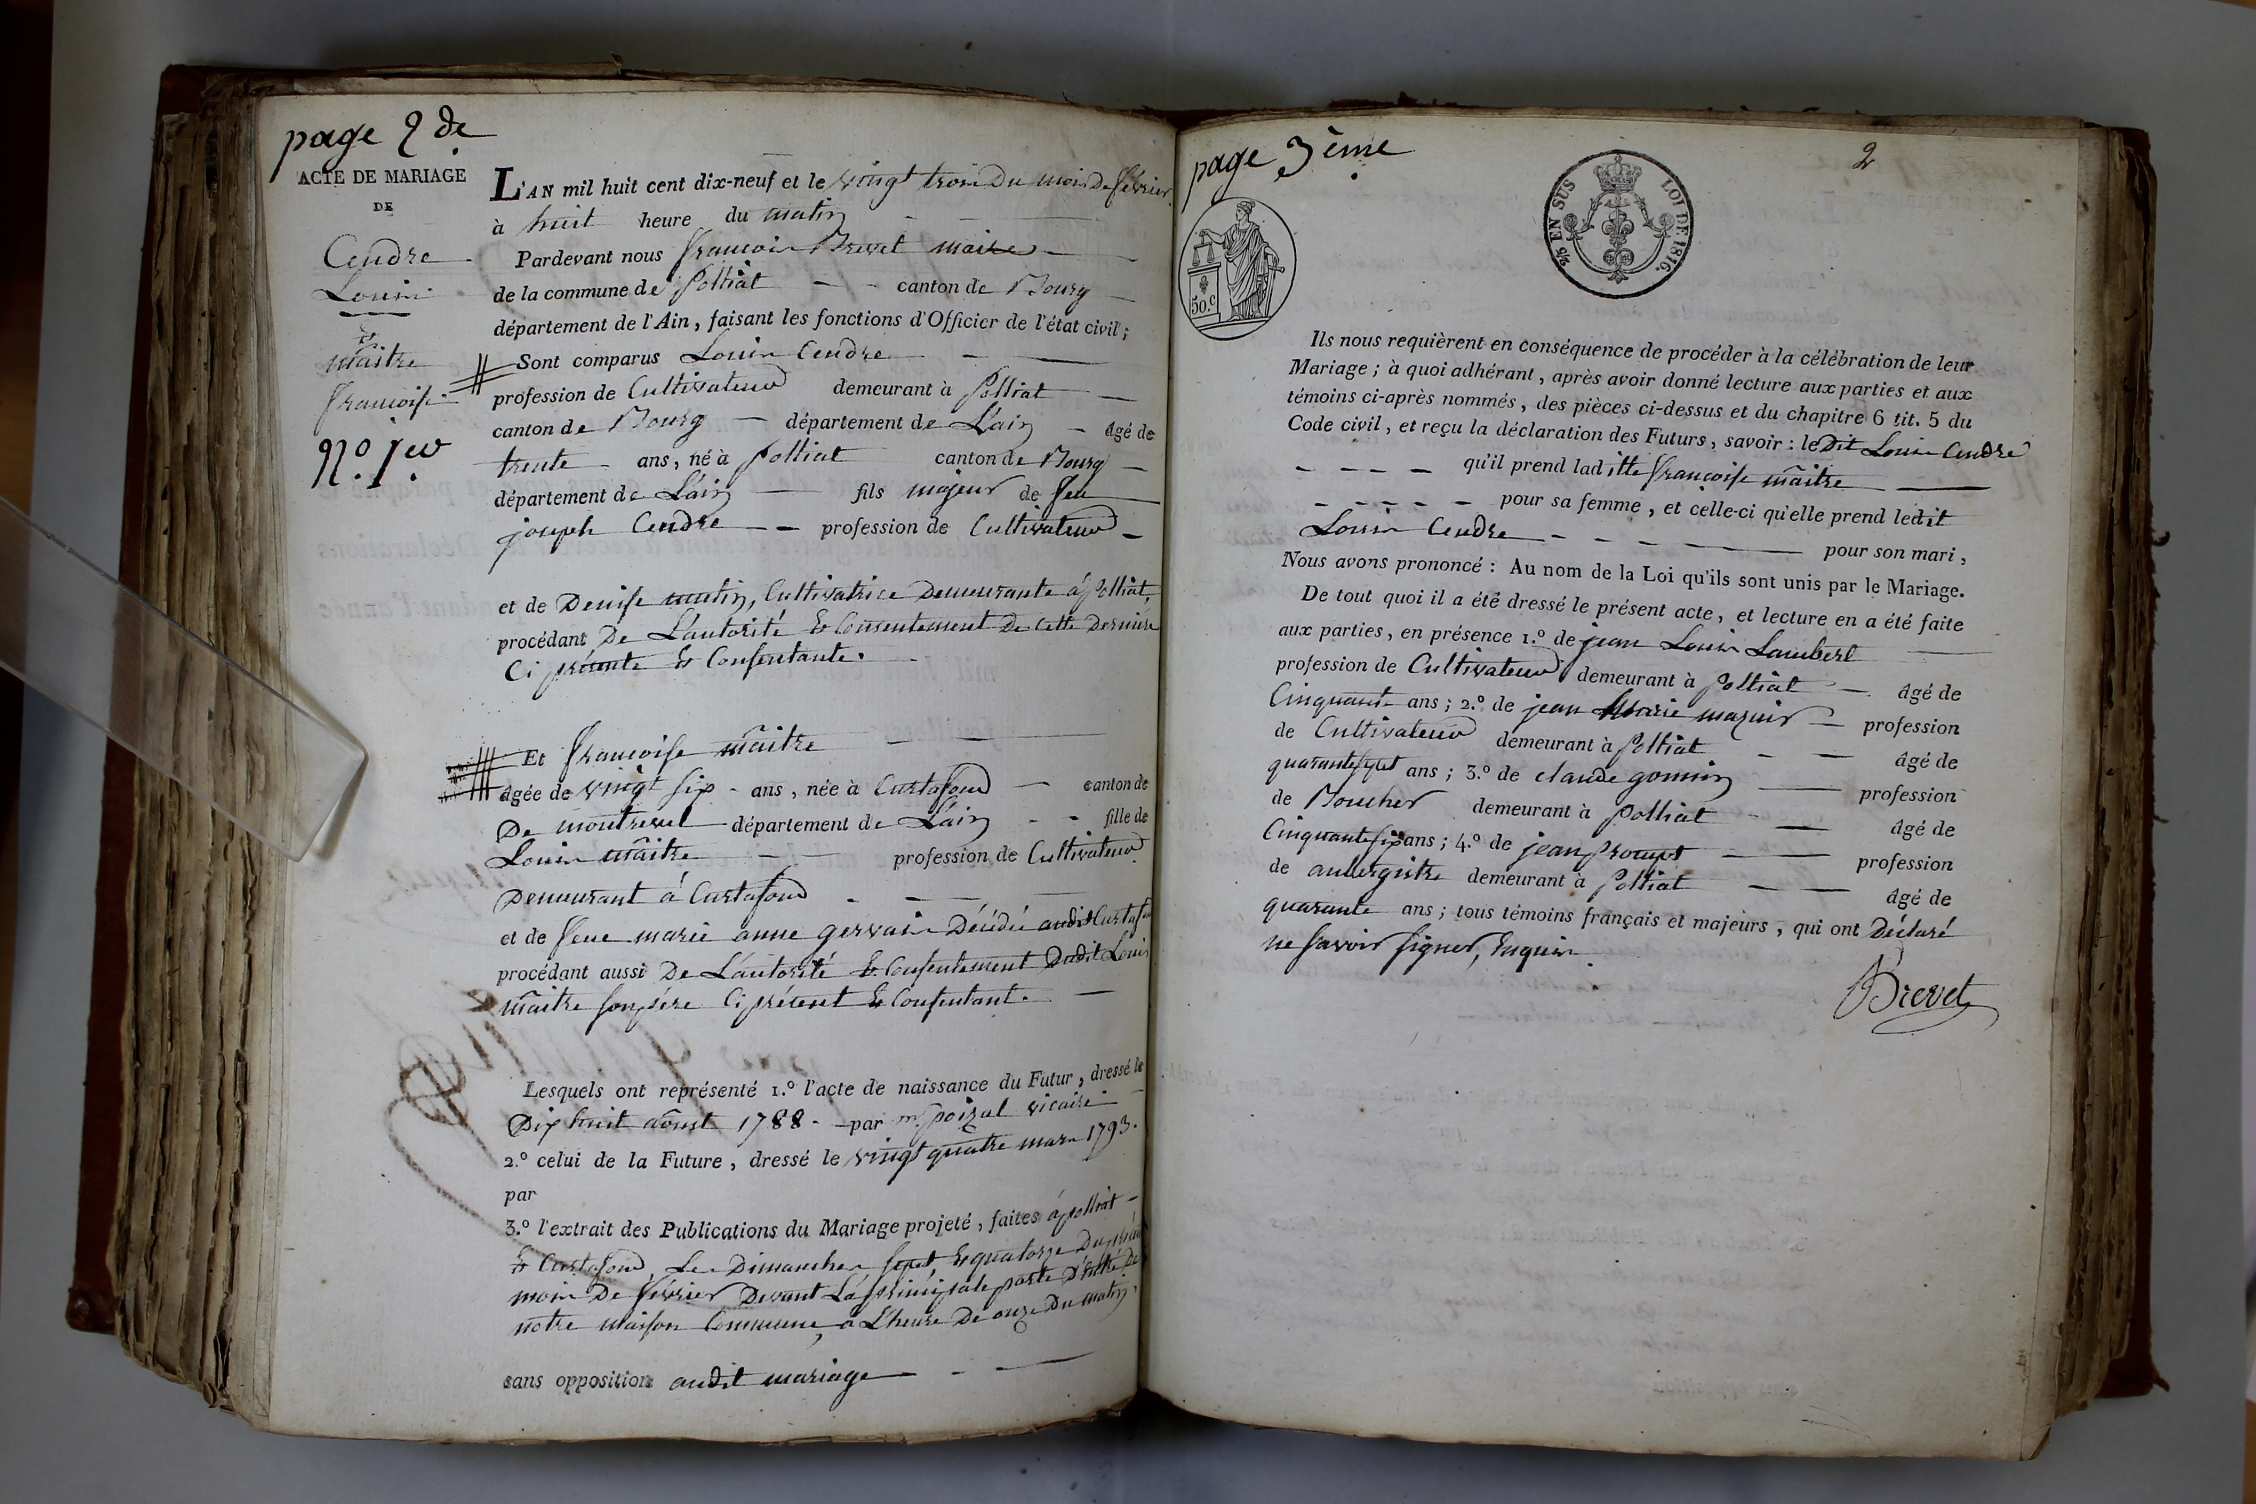 page 2de
ACTE DE MARIAGE
DE
Cendre
Louis
&
maitre
françoise
N.º 1er
L'AN mil huit cent dix-neuf et le vingt trois Du mois De février
à huit heure du matin
Pardevant nous françois Brevet maire
de la commune de Polliat canton de Bourg
département de l'Ain, faisant les fonctions d'Officier de l'état civil;
Sont comparus Louis Cendre
profession de Cultivateur demeurant à Polliat
canton de Bourg département de L'ain âgé de
trente ans, né à Polliat canton de Bourg
département de L'ain fils majeur de feu
joseph Cendre profession de Cultivateur
et de Denise mutin, Cultivatrice Demeurante à Polliat,
procédant De L'autorité & Consentement De cette Derniere
Ci présente & Consentante.
Et françoise maitre
âgée de vingt six ans, née à Curtafond canton de
De montrevel département de L'ain fille de
Louis maitre profession de Cultivateur
Demeurant à Curtafond
et de feue marie anne gervais Décédée audit Curtafond
procédant aussi De L'autorité & Consentement Dudit Louis
maitre son père Ci présent & Consentant.
Lesquels ont représenté 1.º l'acte de naissance du Futur, dressé le
Dix huit août 1788. par mr. poizat vicaire
2.º celui de la Future, dressé le vingt quatre mars 1793.
par
3.º l'extrait des Publications du Mariage projeté, faites à polliat
& Curtafond Les Dimanches sept, & quatorze Du présent
mois De février Devant La principale porte D'entrée De
notre maison Commune, à L'heure De onze Du matin,
sans opposition audit mariage
page 3ème
2
50.c
5/5 EN SUS
LOI DE 1816.
Ils nous requièrent en conséquence de procéder à la célébration de leur
Mariage; à quoi adhérant, après avoir donné lecture aux parties et aux
témoins ci-après nommés, des pièces ci-dessus et du chapitre 6 tit. 5 du
Code civil, et reçu la déclaration des Futurs, savoir: le Dit Louis Cendre
qu'il prend laditte françoise maitre
pour sa femme, et celle-ci qu'elle prend ledit
Louis Cendre pour son mari,
Nous avons prononcé: Au nom de la Loi qu'ils sont unis par le Mariage.
De tout quoi il a été dressé le présent acte, et lecture en a été faite
aux parties, en présence 1.º de jean Louis Lambert
profession de Cultivateur demeurant à Polliat âgé de
Cinquante ans; 2.º de jean Marie profession
de Cultivateur demeurant à Polliat âgé de
quarante sept ans; 3.º de claude gonnin profession
de Boucher demeurant à Polliat âgé de
Cinquante six ans; 4.º de jean profession
de aubergiste demeurant à Polliat âgé de
quarante ans; tous témoins français et majeurs, qui ont Déclaré
ne savoir signer, Enquis
Brevet